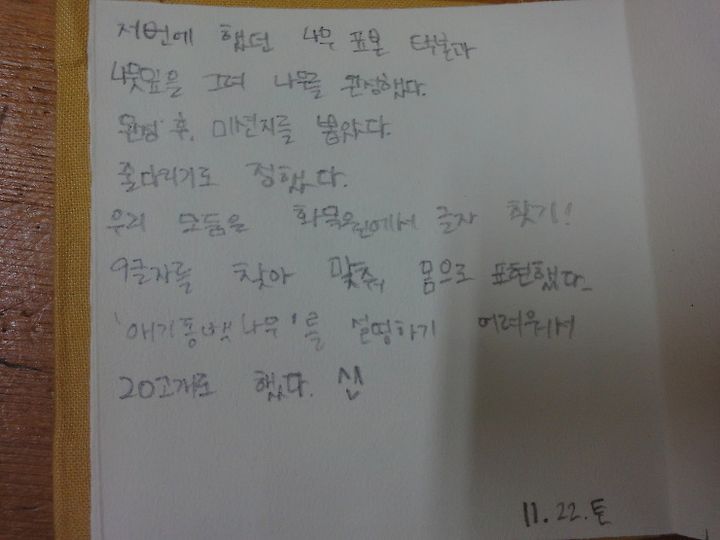 저번에 했던 나무 표본
나뭇잎을 그려 나무를 완성했다.
완성 후, 미션지를 뽑았다.
줄다리기로 정했다.
우리 모둠은 화목원에서 글자 찾기!
9글자를 찾아 맞춰 몸으로 표현했다.
'애기동백나무'를 설명하기 어려워서
20고개로 했다. ^^
11. 22. 토